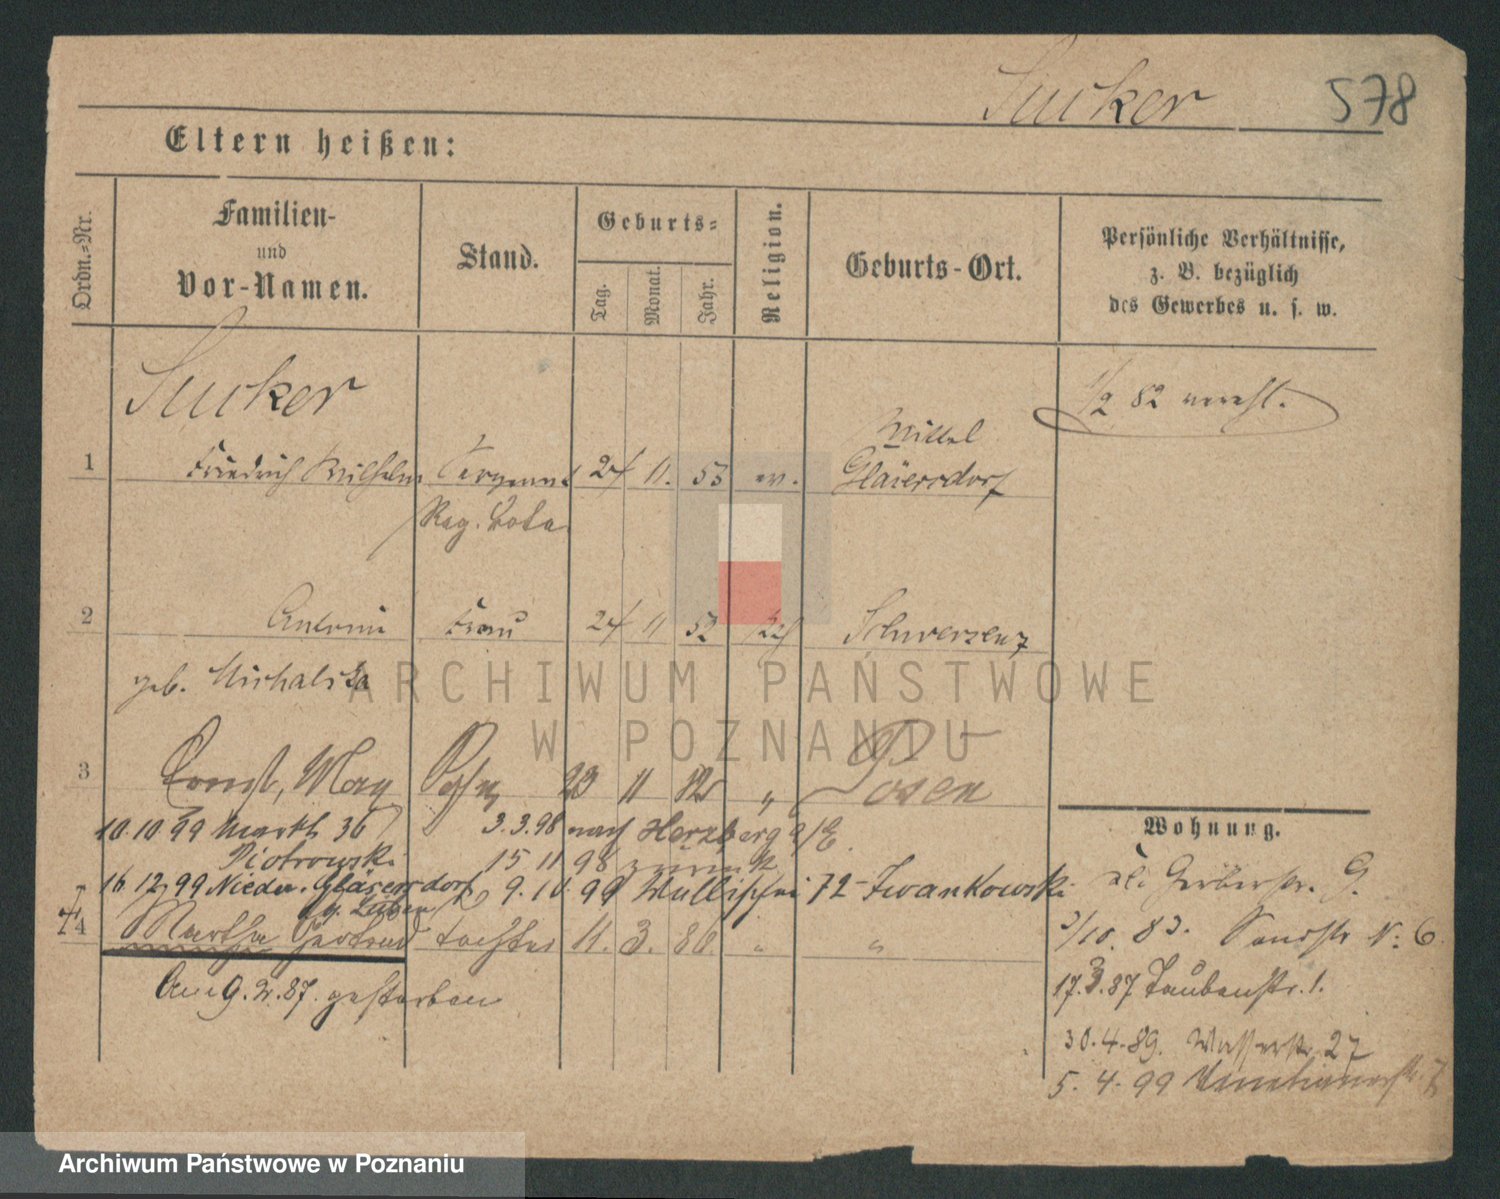 Sucker 578
Eltern heißen:
Ordn.=Nr.
Familien-
und
Vor-Namen.
Stand.
Geburts=
Tag.
Monat.
Jahr.
Religion.
Geburts-Ort.
Persönliche Verhältnisse,
z. B. bezüglich
des Gewerbes u. s. w.
Sucker
1/2 82 vereh.
Mittel
1 Friedrich Wilhelm 24 11. 53 ev. Gläsersdorf
Reg. Bote
2 Antonie Frau 24 11 52 Schwersenz
geb. Michalska
ARCHIWUM PAŃSTWOWE
W POZNANIU
3 Ernst, Max Sohn 23 11 82 " Posen
10.10.99 Markt 36 3.3.98 nach Herzberg a/E.
Piotrowski 15 11 98 zurück
16 12 99 Nieder. Gläsersdorf 9.10.99 Wallischei 72 Iwankowski
Lüben
4 Martha Gertrud Tochter 11. 3. 86. " "
Am 9. 2. 87. gestorben
Wohnung.
Gerberstr. 9.
3/10. 83. Sandstr N: 6
17.3.87 Taubenstr. 1.
30.4.89. Wasserstr. 27
5. 4. 99 Venetianerstr. 7
Archiwum Państwowe w Poznaniu